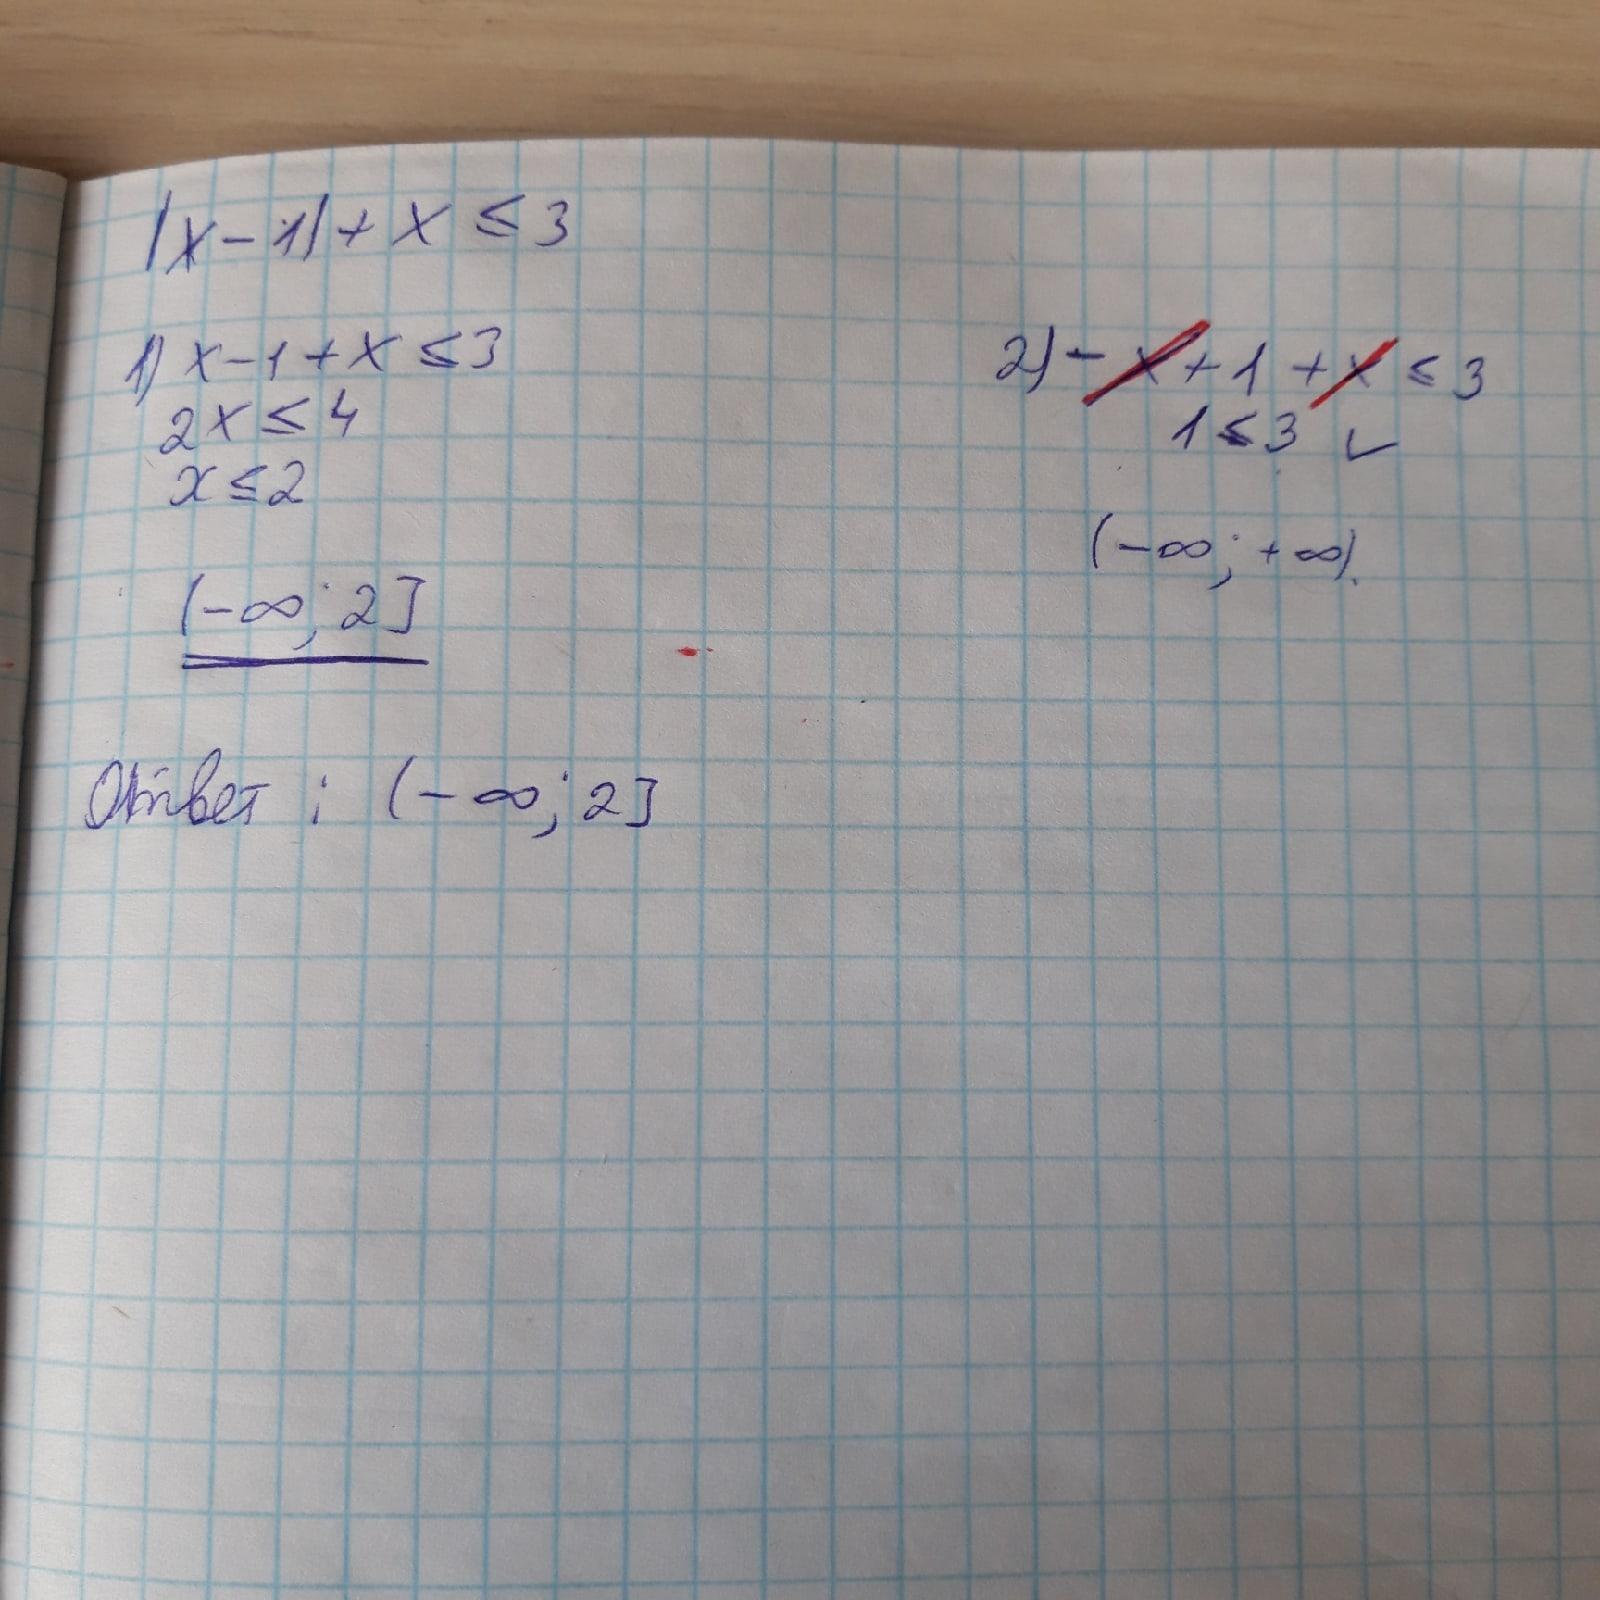 |x-1|+x ≤ 3
1) x-1+x ≤ 3
2x ≤ 4
x ≤ 2
(-∞; 2]
2) -x+1+x ≤ 3
1 ≤ 3 ✓
(-∞; +∞).
Ответ: (-∞; 2]